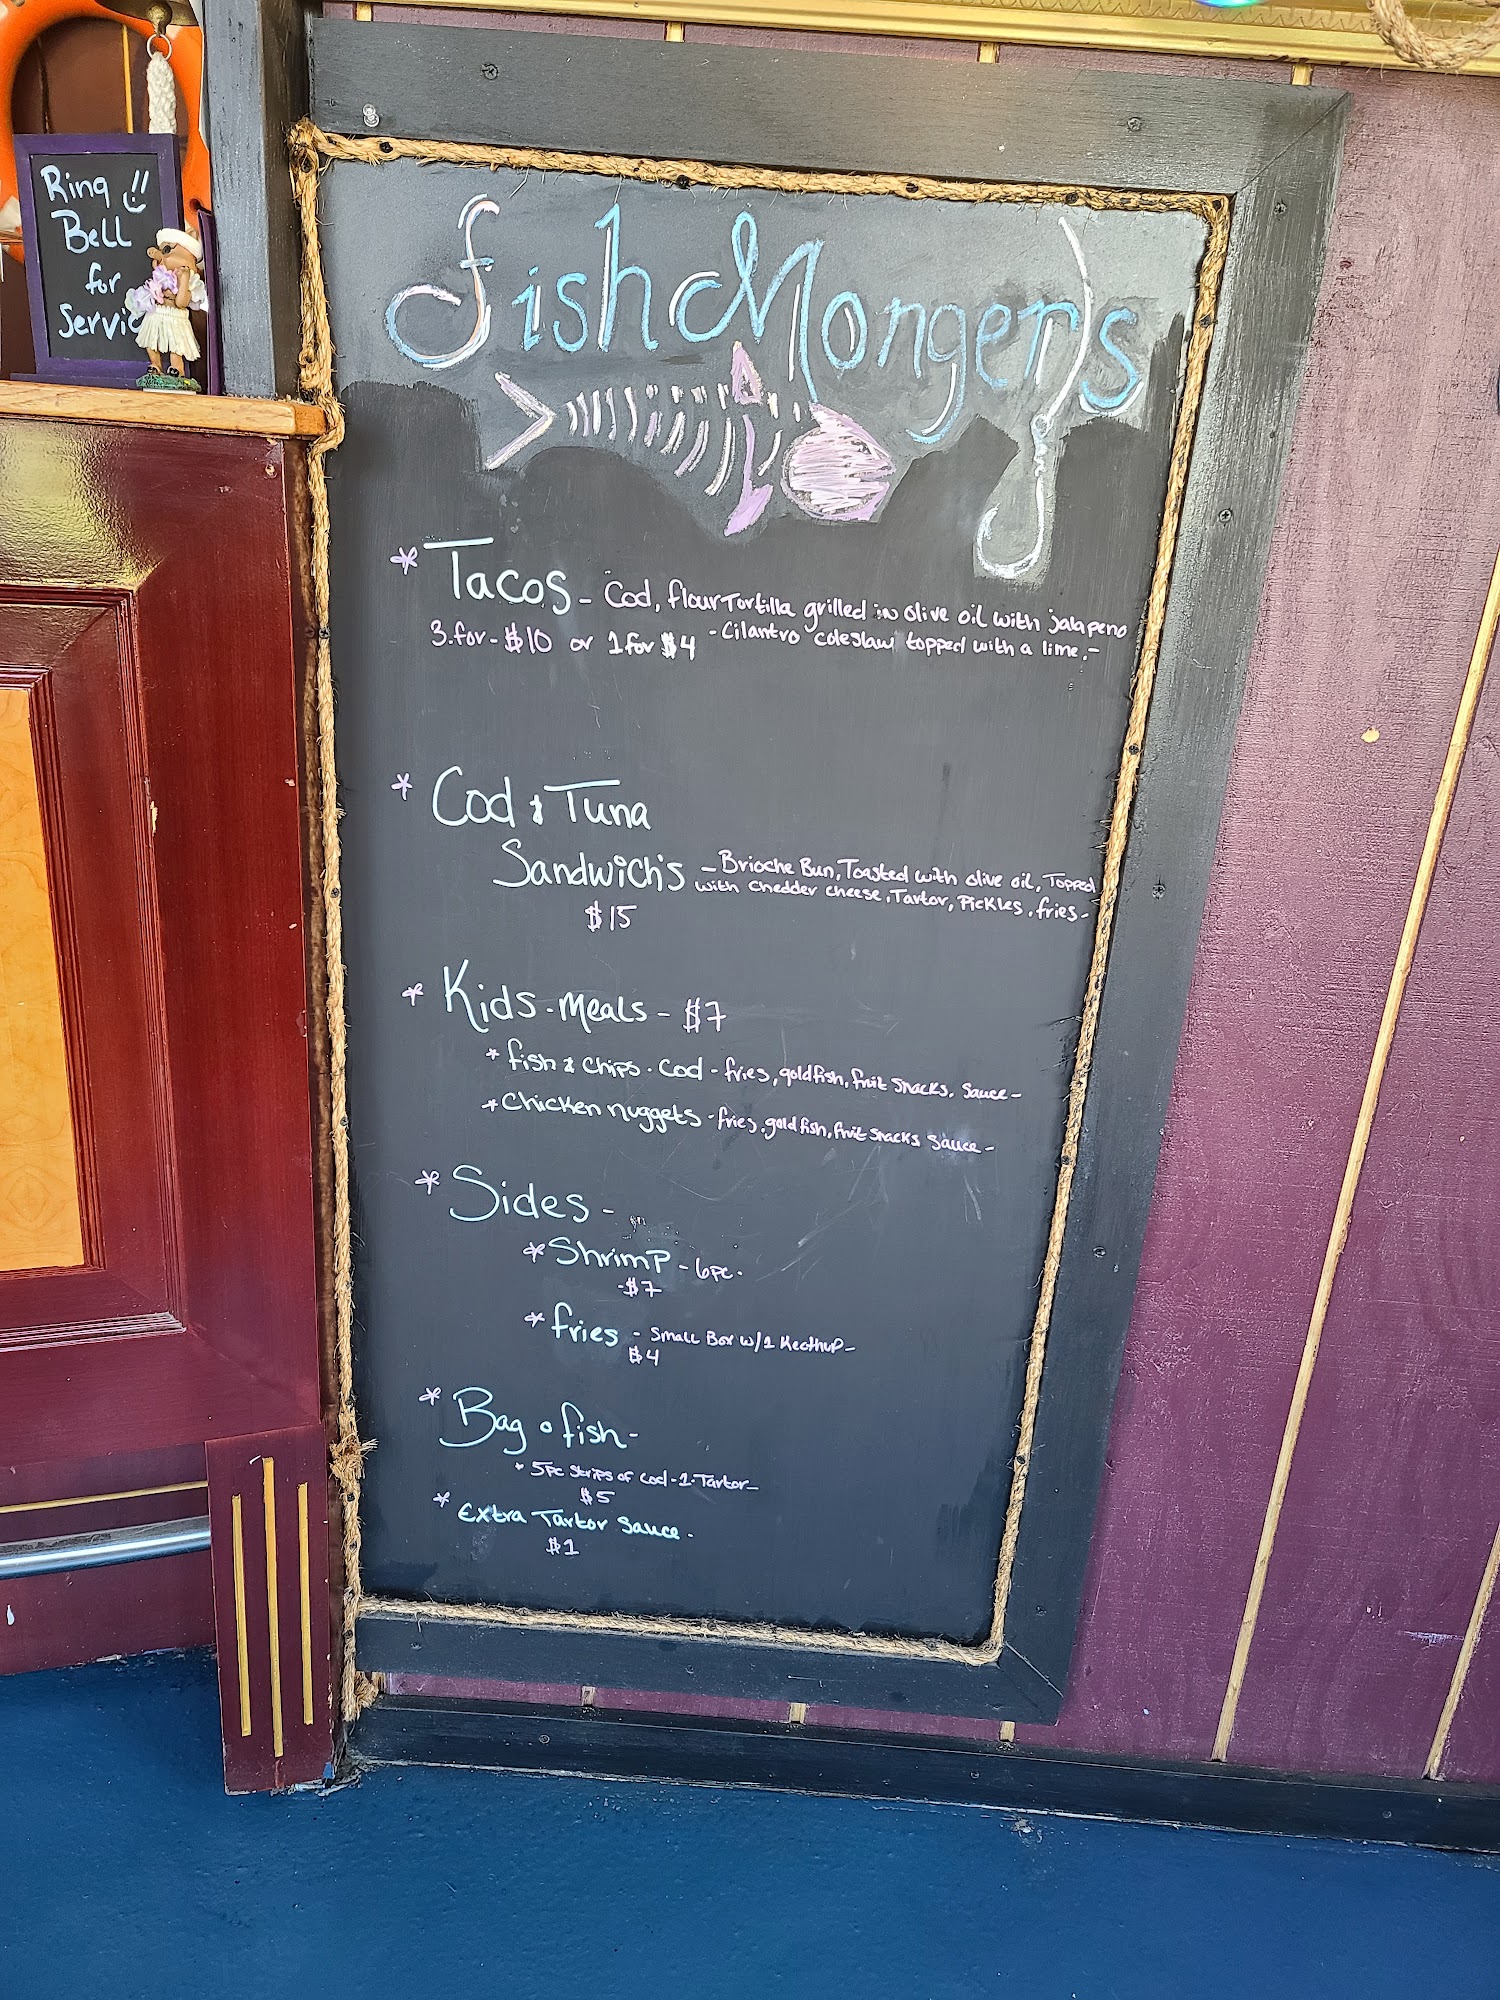 Ring !!
Bell
for
Servic
fish Monger's
* Tacos - Cod, flour Tortilla grilled in olive oil with jalapeno
3.for - $10 or 1 for $4 - Cilantro coleslaw topped with a lime. -
* Cod & Tuna
Sandwich's - Brioche Bun, Toasted with olive oil, Topped
with chedder cheese, Tartor, Pickles, fries -
$15
* Kids - Meals - $7
* fish & chips - Cod - fries, goldfish, fruit snacks, Sauce -
* Chicken nuggets - fries, goldfish, fruit snacks Sauce -
* Sides -
* Shrimp - 6pc -
- $7
* fries - Small Box w/1 Kecthup -
$4
* Bag o fish -
* 5pc strips of Cod - 1 - Tartor -
$5
* Extra Tartor Sauce -
$1